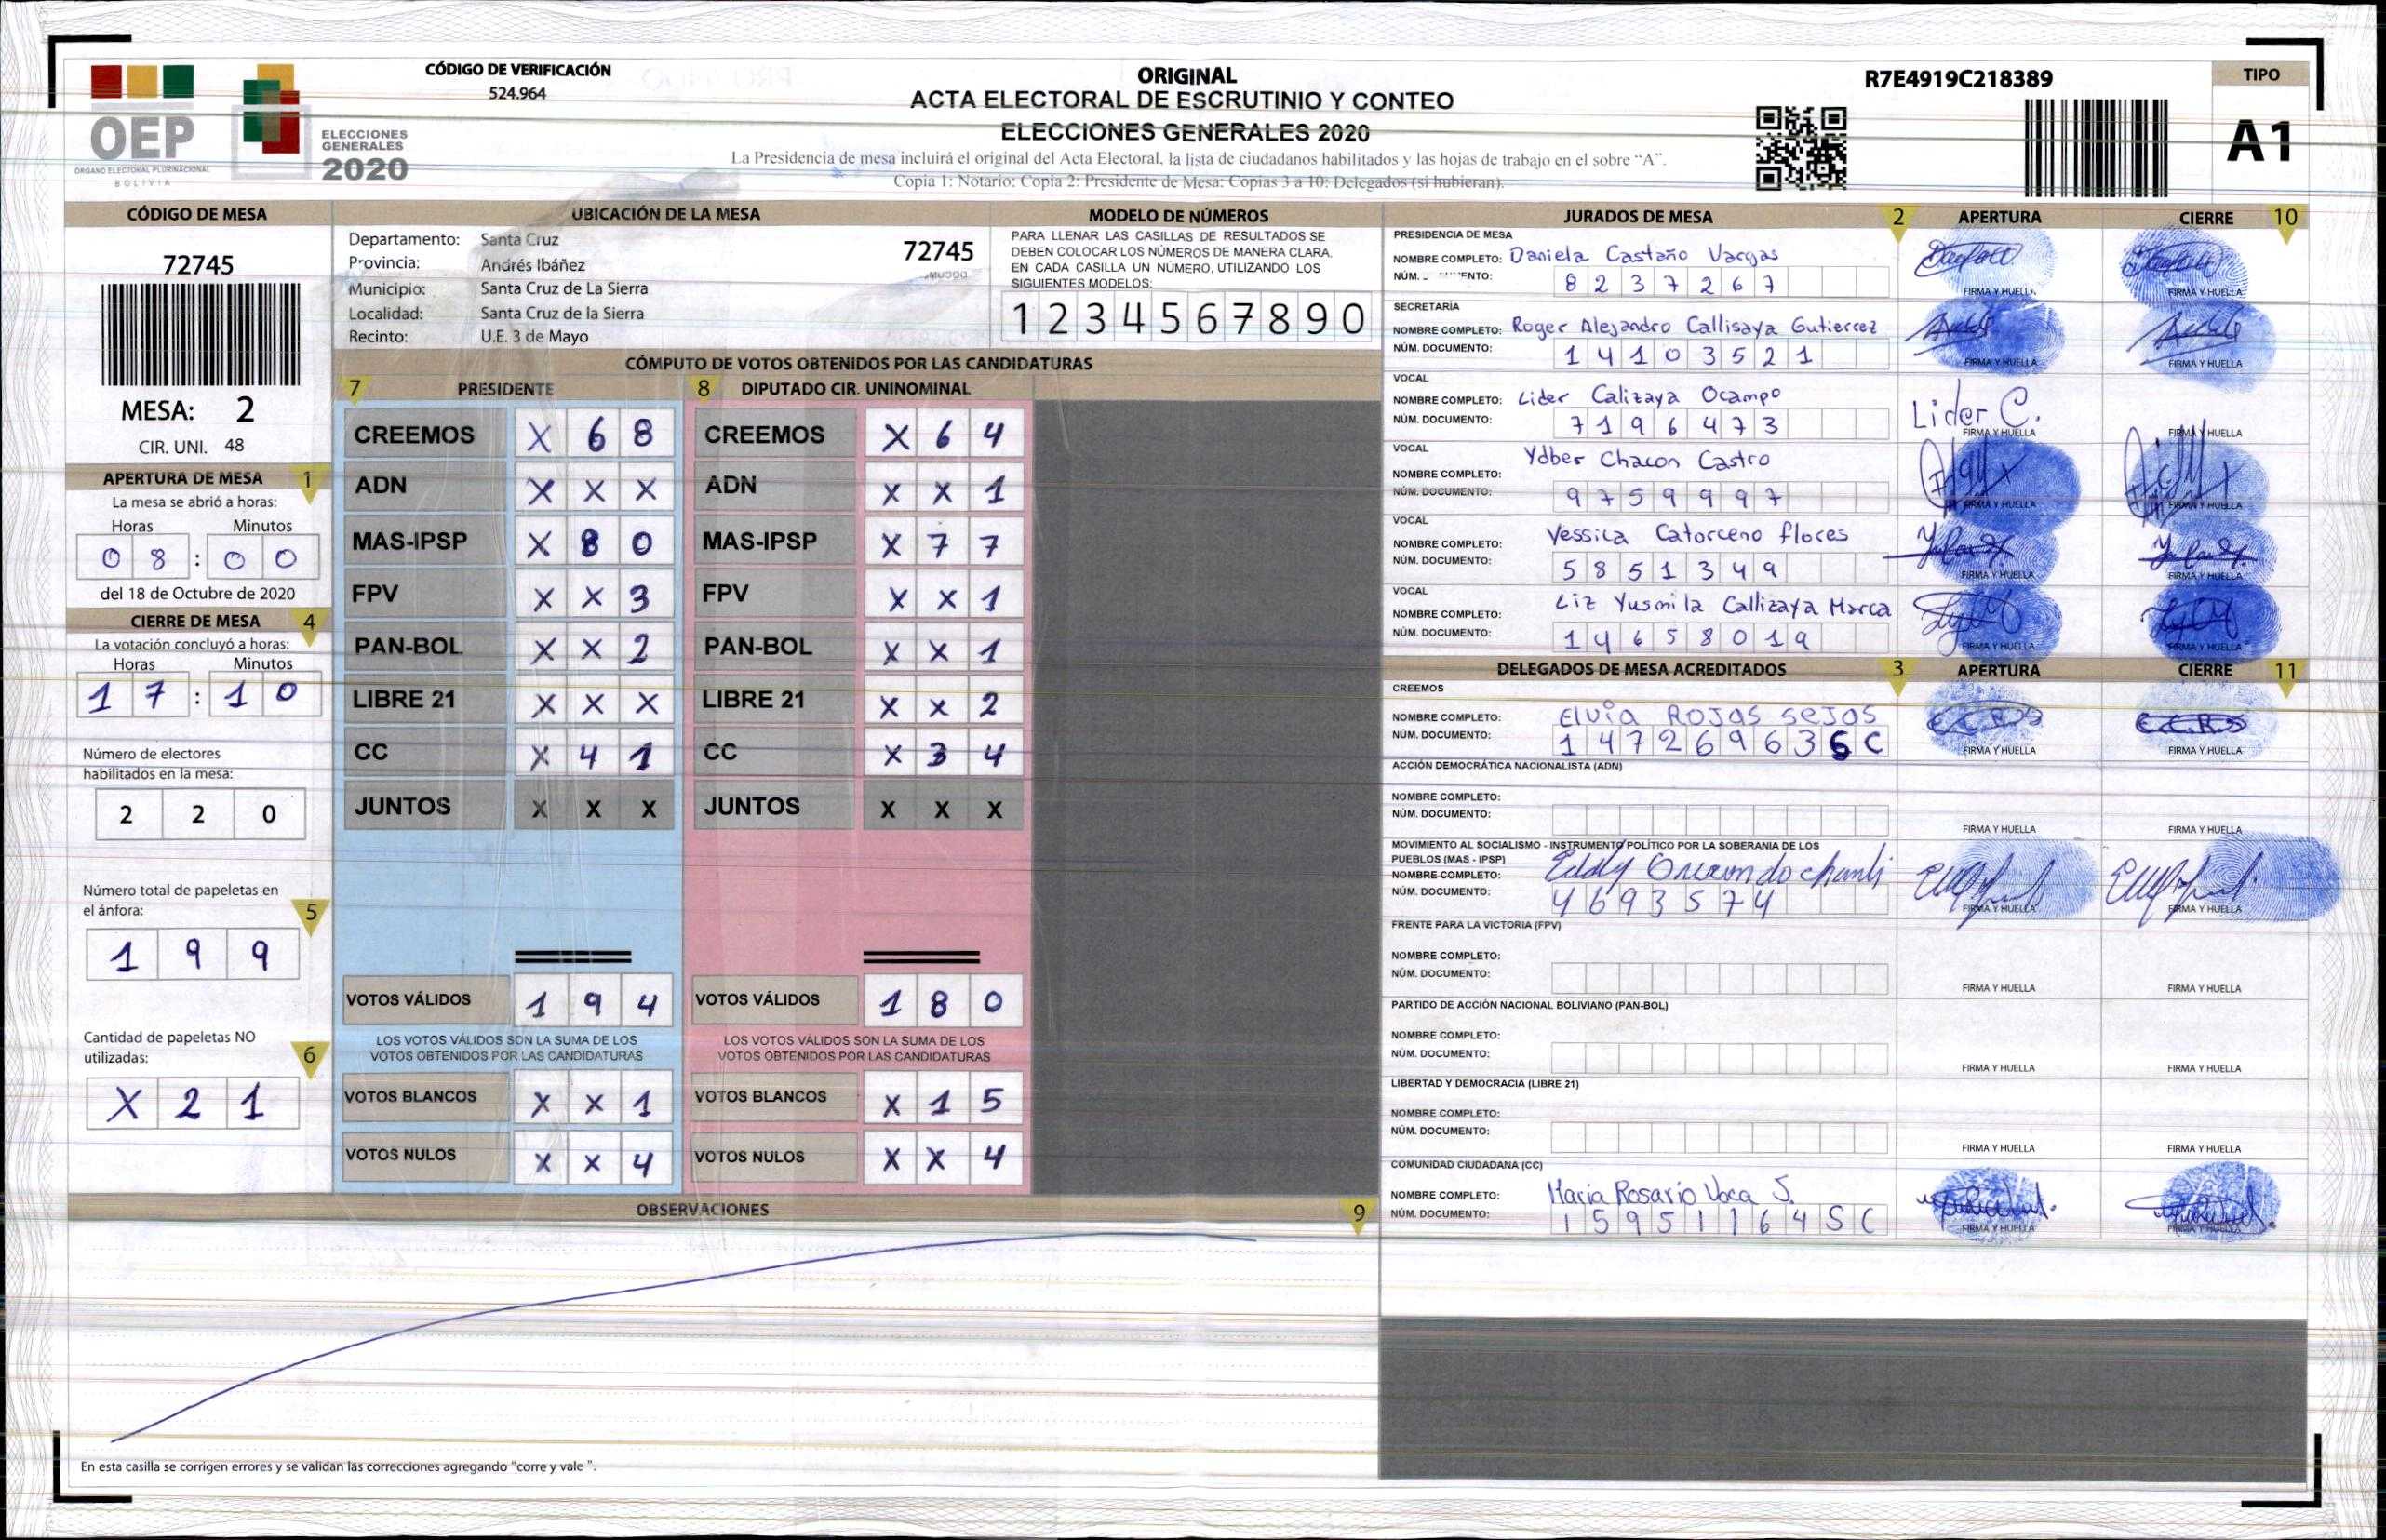 OEP
ÓRGANO ELECTORAL PLURINACIONAL
BOLIVIA
ELECCIONES
GENERALES
2020
CÓDIGO DE VERIFICACIÓN
524.964
ORIGINAL
ACTA ELECTORAL DE ESCRUTINIO Y CONTEO
ELECCIONES GENERALES 2020
La Presidencia de mesa incluirá el original del Acta Electoral, la lista de ciudadanos habilitados y las hojas de trabajo en el sobre "A".
Copia 1: Notario; Copia 2: Presidente de Mesa; Copias 3 a 10: Delegados (si hubieran).
R7E4919C218389
TIPO
A1
CÓDIGO DE MESA
72745
MESA: 2
CIR. UNI. 48
APERTURA DE MESA 1
La mesa se abrió a horas:
Horas Minutos
0 8 : 0 0
del 18 de Octubre de 2020
CIERRE DE MESA 4
La votación concluyó a horas:
Horas Minutos
1 7 : 1 0
Número de electores
habilitados en la mesa:
2 2 0
Número total de papeletas en
el ánfora: 5
1 9 9
Cantidad de papeletas NO
utilizadas: 6
X 2 1
UBICACIÓN DE LA MESA
Departamento: Santa Cruz
72745
Provincia: Andrés Ibáñez
Municipio: Santa Cruz de La Sierra
Localidad: Santa Cruz de la Sierra
Recinto: U.E. 3 de Mayo
MODELO DE NÚMEROS
PARA LLENAR LAS CASILLAS DE RESULTADOS SE
DEBEN COLOCAR LOS NÚMEROS DE MANERA CLARA.
EN CADA CASILLA UN NÚMERO, UTILIZANDO LOS
SIGUIENTES MODELOS:
1 2 3 4 5 6 7 8 9 0
CÓMPUTO DE VOTOS OBTENIDOS POR LAS CANDIDATURAS
7 PRESIDENTE 8 DIPUTADO CIR. UNINOMINAL
CREEMOS X 6 8 CREEMOS X 6 4
ADN X X X ADN X X 1
MAS-IPSP X 8 0 MAS-IPSP X 7 7
FPV X X 3 FPV X X 1
PAN-BOL X X 2 PAN-BOL X X 1
LIBRE 21 X X X LIBRE 21 X X 2
CC X 4 1 CC X 3 4
JUNTOS X X X JUNTOS X X X
VOTOS VÁLIDOS 1 9 4 VOTOS VÁLIDOS 1 8 0
LOS VOTOS VÁLIDOS SON LA SUMA DE LOS LOS VOTOS VÁLIDOS SON LA SUMA DE LOS
VOTOS OBTENIDOS POR LAS CANDIDATURAS VOTOS OBTENIDOS POR LAS CANDIDATURAS
VOTOS BLANCOS X X 1 VOTOS BLANCOS X 1 5
VOTOS NULOS X X 4 VOTOS NULOS X X 4
OBSERVACIONES 9
En esta casilla se corrigen errores y se validan las correcciones agregando "corre y vale ".
JURADOS DE MESA 2 APERTURA CIERRE 10
PRESIDENCIA DE MESA
NOMBRE COMPLETO: Daniela Castaño Vargas
8 2 3 7 2 6 7
FIRMA Y HUELLA FIRMA Y HUELLA
SECRETARÍA
NOMBRE COMPLETO: Roger Alejandro Callisaya Gutierrez
NÚM. DOCUMENTO: 1 4 1 0 3 5 2 1
FIRMA Y HUELLA FIRMA Y HUELLA
VOCAL
NOMBRE COMPLETO: Lider Calizaya Ocampo
NÚM. DOCUMENTO: 7 1 9 6 4 7 3
Lider C.
FIRMA Y HUELLA FIRMA Y HUELLA
VOCAL
NOMBRE COMPLETO: Ydber Chacon Castro
NÚM. DOCUMENTO: 9 7 5 9 9 9 7
FIRMA Y HUELLA FIRMA Y HUELLA
VOCAL
NOMBRE COMPLETO: Yessica Catorceno flores
NÚM. DOCUMENTO: 5 8 5 1 3 4 9
FIRMA Y HUELLA FIRMA Y HUELLA
VOCAL
NOMBRE COMPLETO: Liz Yusmila Callizaya Marca
NÚM. DOCUMENTO: 1 4 6 5 8 0 1 9
FIRMA Y HUELLA FIRMA Y HUELLA
DELEGADOS DE MESA ACREDITADOS 3 APERTURA CIERRE 11
CREEMOS
NOMBRE COMPLETO: Elvia Rojas Sejas
NÚM. DOCUMENTO: 1 4 7 2 6 9 6 3 S C
FIRMA Y HUELLA FIRMA Y HUELLA
ACCIÓN DEMOCRÁTICA NACIONALISTA (ADN)
NOMBRE COMPLETO:
NÚM. DOCUMENTO:
FIRMA Y HUELLA FIRMA Y HUELLA
MOVIMIENTO AL SOCIALISMO - INSTRUMENTO POLÍTICO POR LA SOBERANIA DE LOS
PUEBLOS (MAS - IPSP)
NOMBRE COMPLETO: Eddy
NÚM. DOCUMENTO: 4 6 9 3 5 7 4
FIRMA Y HUELLA FIRMA Y HUELLA
FRENTE PARA LA VICTORIA (FPV)
NOMBRE COMPLETO:
NÚM. DOCUMENTO:
FIRMA Y HUELLA FIRMA Y HUELLA
PARTIDO DE ACCIÓN NACIONAL BOLIVIANO (PAN-BOL)
NOMBRE COMPLETO:
NÚM. DOCUMENTO:
FIRMA Y HUELLA FIRMA Y HUELLA
LIBERTAD Y DEMOCRACIA (LIBRE 21)
NOMBRE COMPLETO:
NÚM. DOCUMENTO:
FIRMA Y HUELLA FIRMA Y HUELLA
COMUNIDAD CIUDADANA (CC)
NOMBRE COMPLETO: Maria Rosario Vaca J.
NÚM. DOCUMENTO: 1 5 9 5 1 1 6 4 S C
FIRMA Y HUELLA FIRMA Y HUELLA